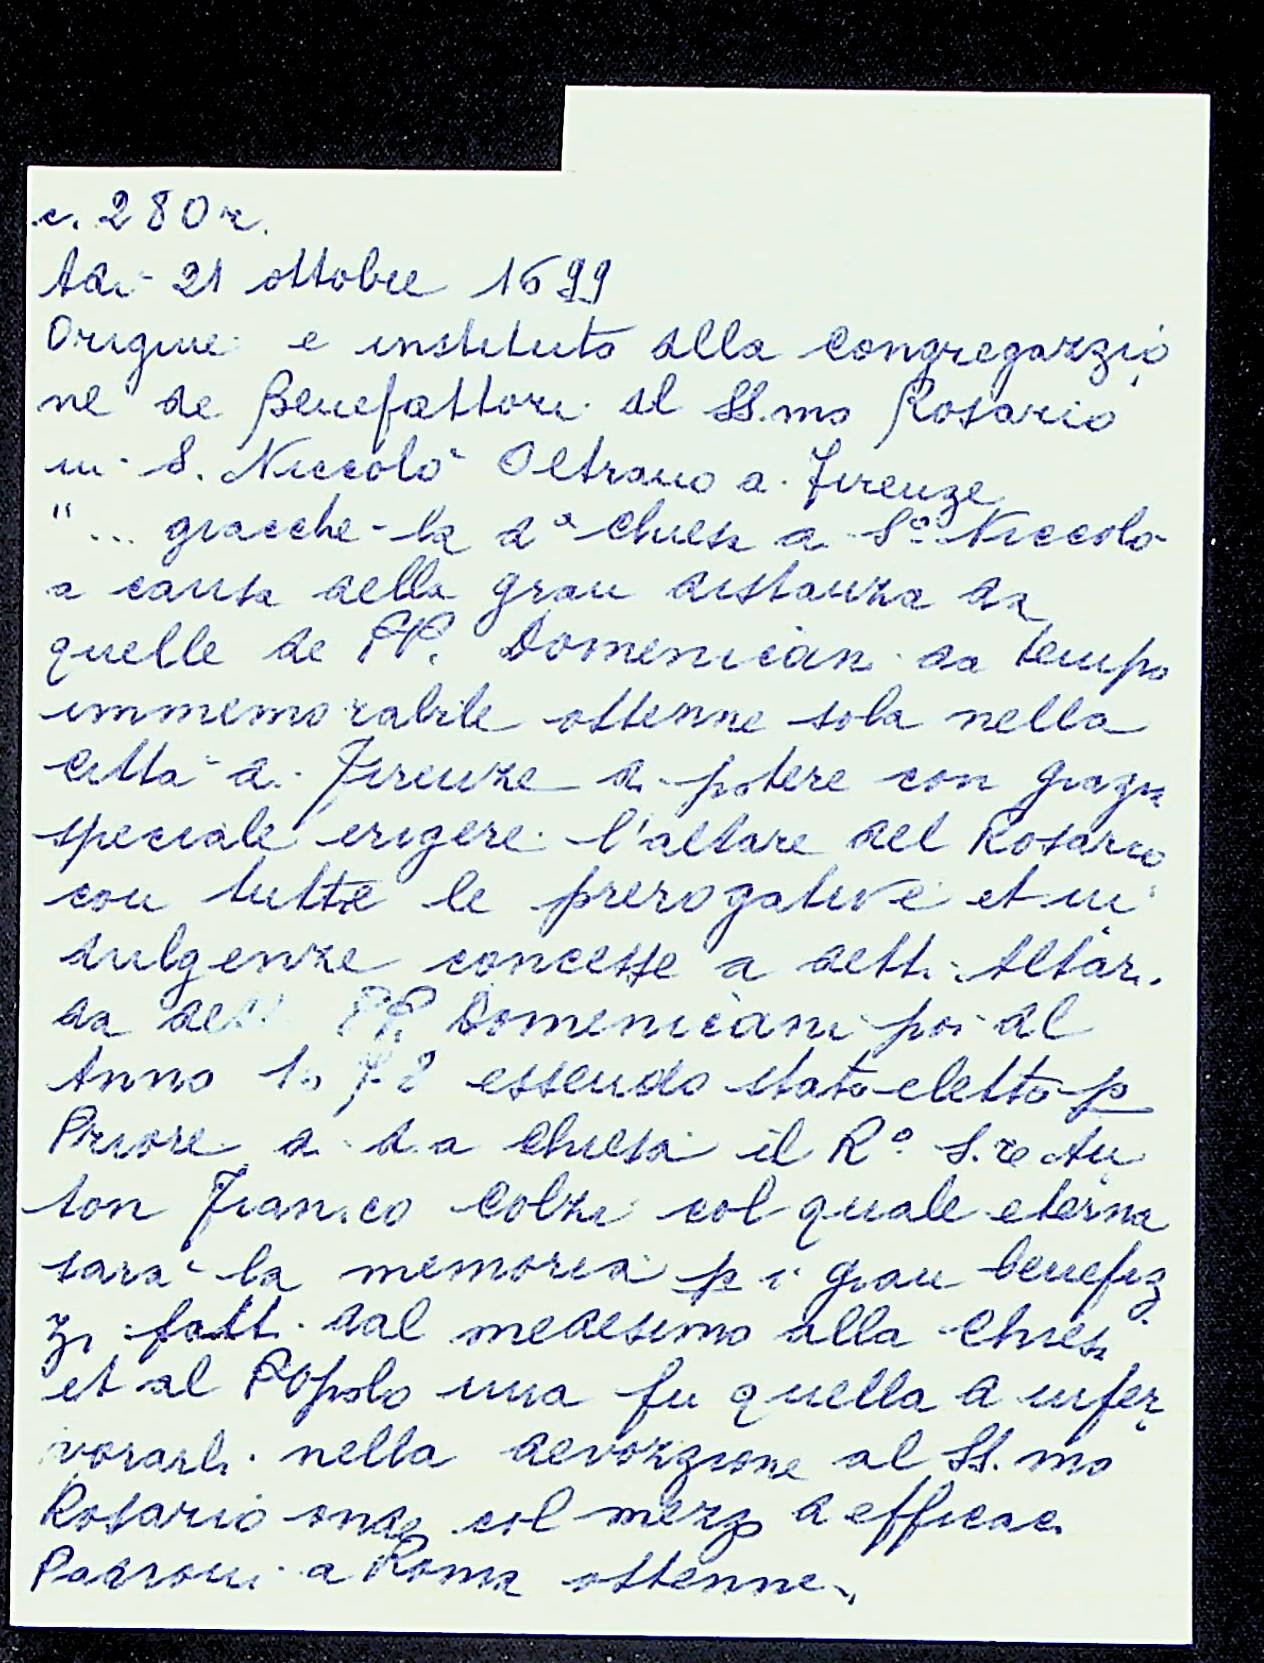 c. 280r.
Adi 21 ottobre 1699
Origine e instituto della Congregazzio
ne de Benefattori del SS.mo Rosario
in S. Niccolò Oltrarno a Firenze
"... giacche la dª Chiesa di Sº Niccolò
a causa della gran distanza da
quelle de PP. Domenicani da tempo
immemorabile ottenne sola nella
città di Firenze di potere con grazia
speciale erigere l'altare del Rosario
con tutte le prerogative et in
dulgenze concesse a detti Altari
da detti PP. Domenicani poi del
Anno essendo stato eletto p
Priore di d.a Chiesa il Rº S.re An
ton Franc.co Colzi col quale eterna
sarà la memoria p i gran benefiz
zi fatti dal medesimo alla Chiesa
et al Popolo una fu quella d infer
vorarli nella devozzione al SS.mo
Rosario onde col mezzo d efficaci
Padroni a Roma ottenne